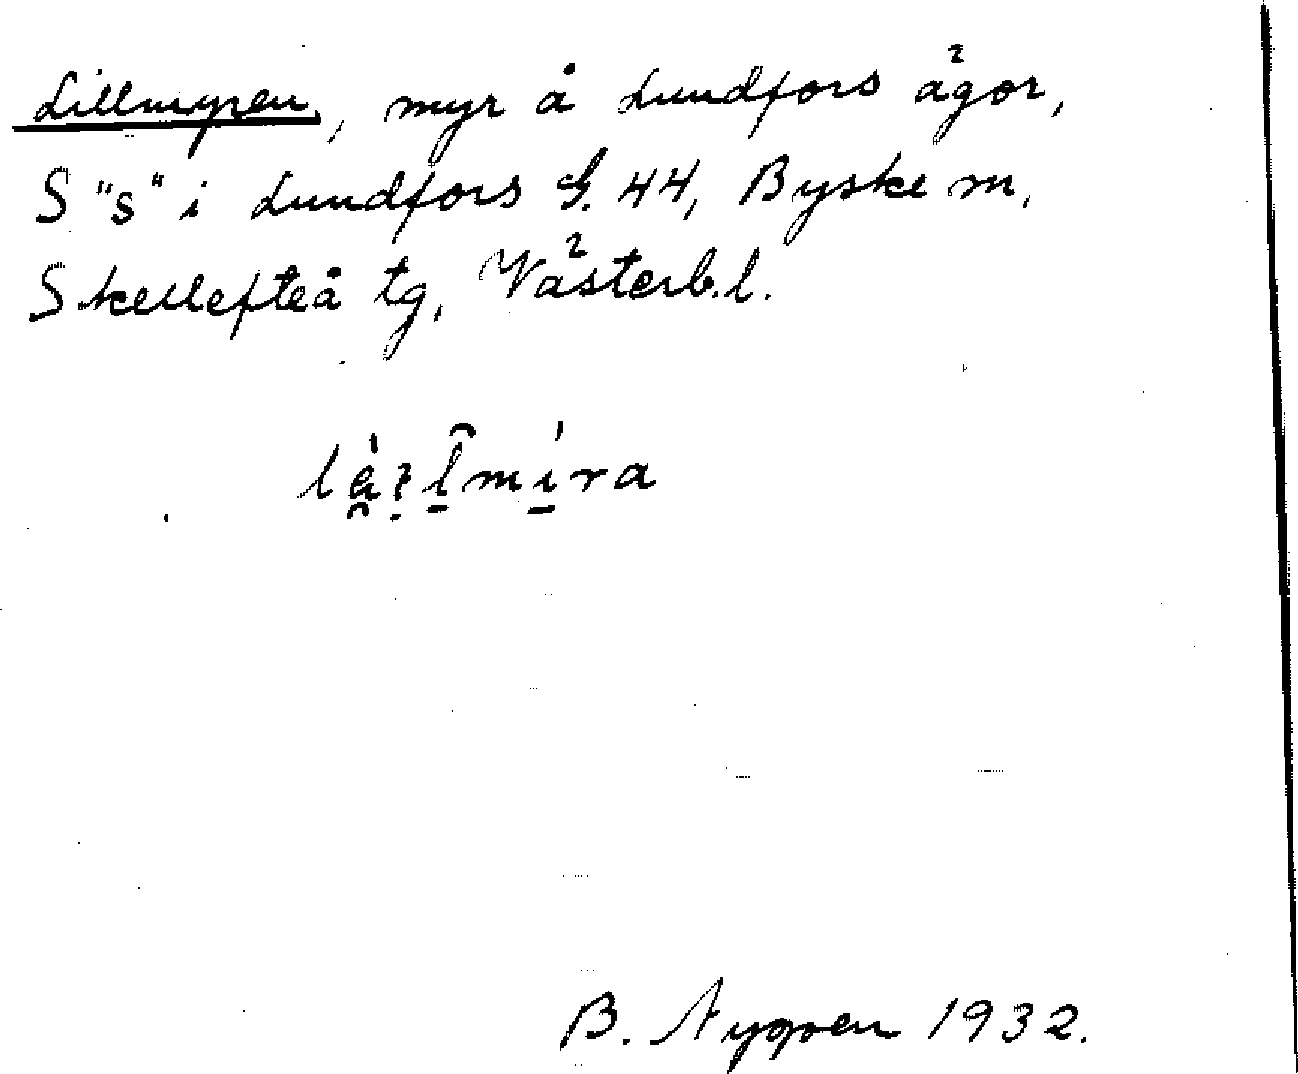 Lillmyren, myr å Lundfors ägor,
S "s" i Lundfors G. 44, Byske sn,
Skellefteå tg, Västerb.l.
B. Nygren 1932.